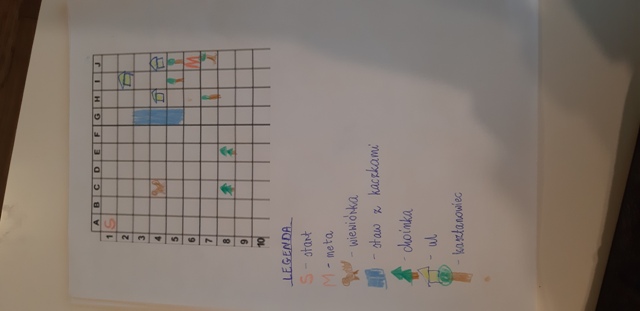 A B C D E F G H I J
1 S
2
3
4
5
6 M
7
8
9
10
LEGENDA
S - start
M - meta
- wiewiórka
- staw z kaczkami
- choinka
- ul
- kasztanowiec